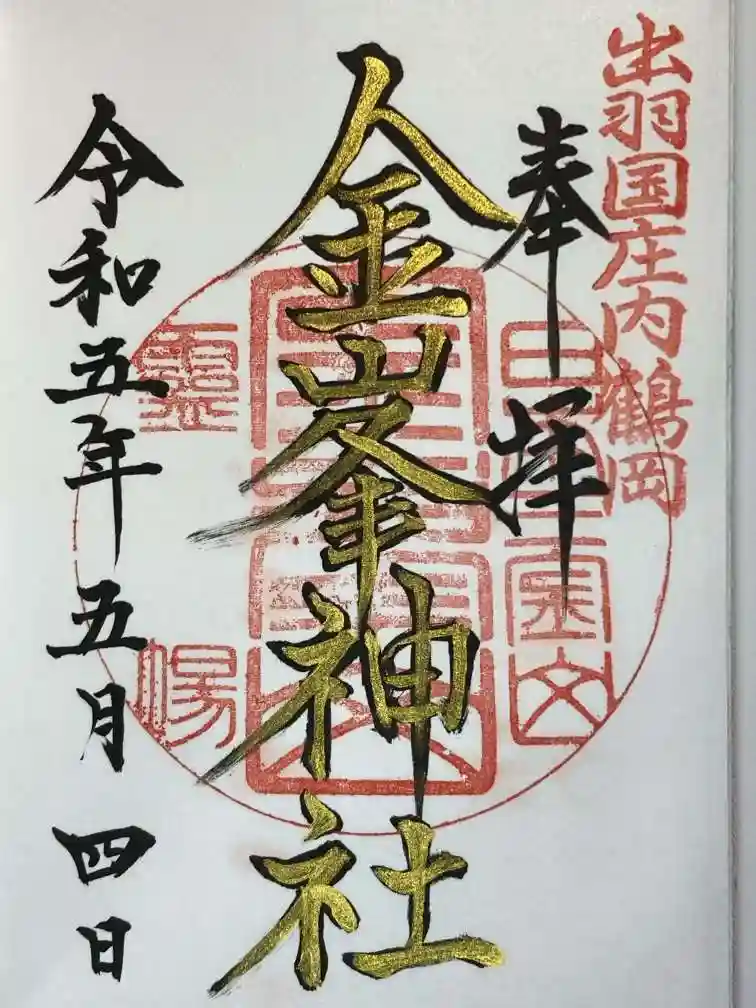 出羽国庄内鶴岡
奉拝
金峯神社
令和五年五月四日